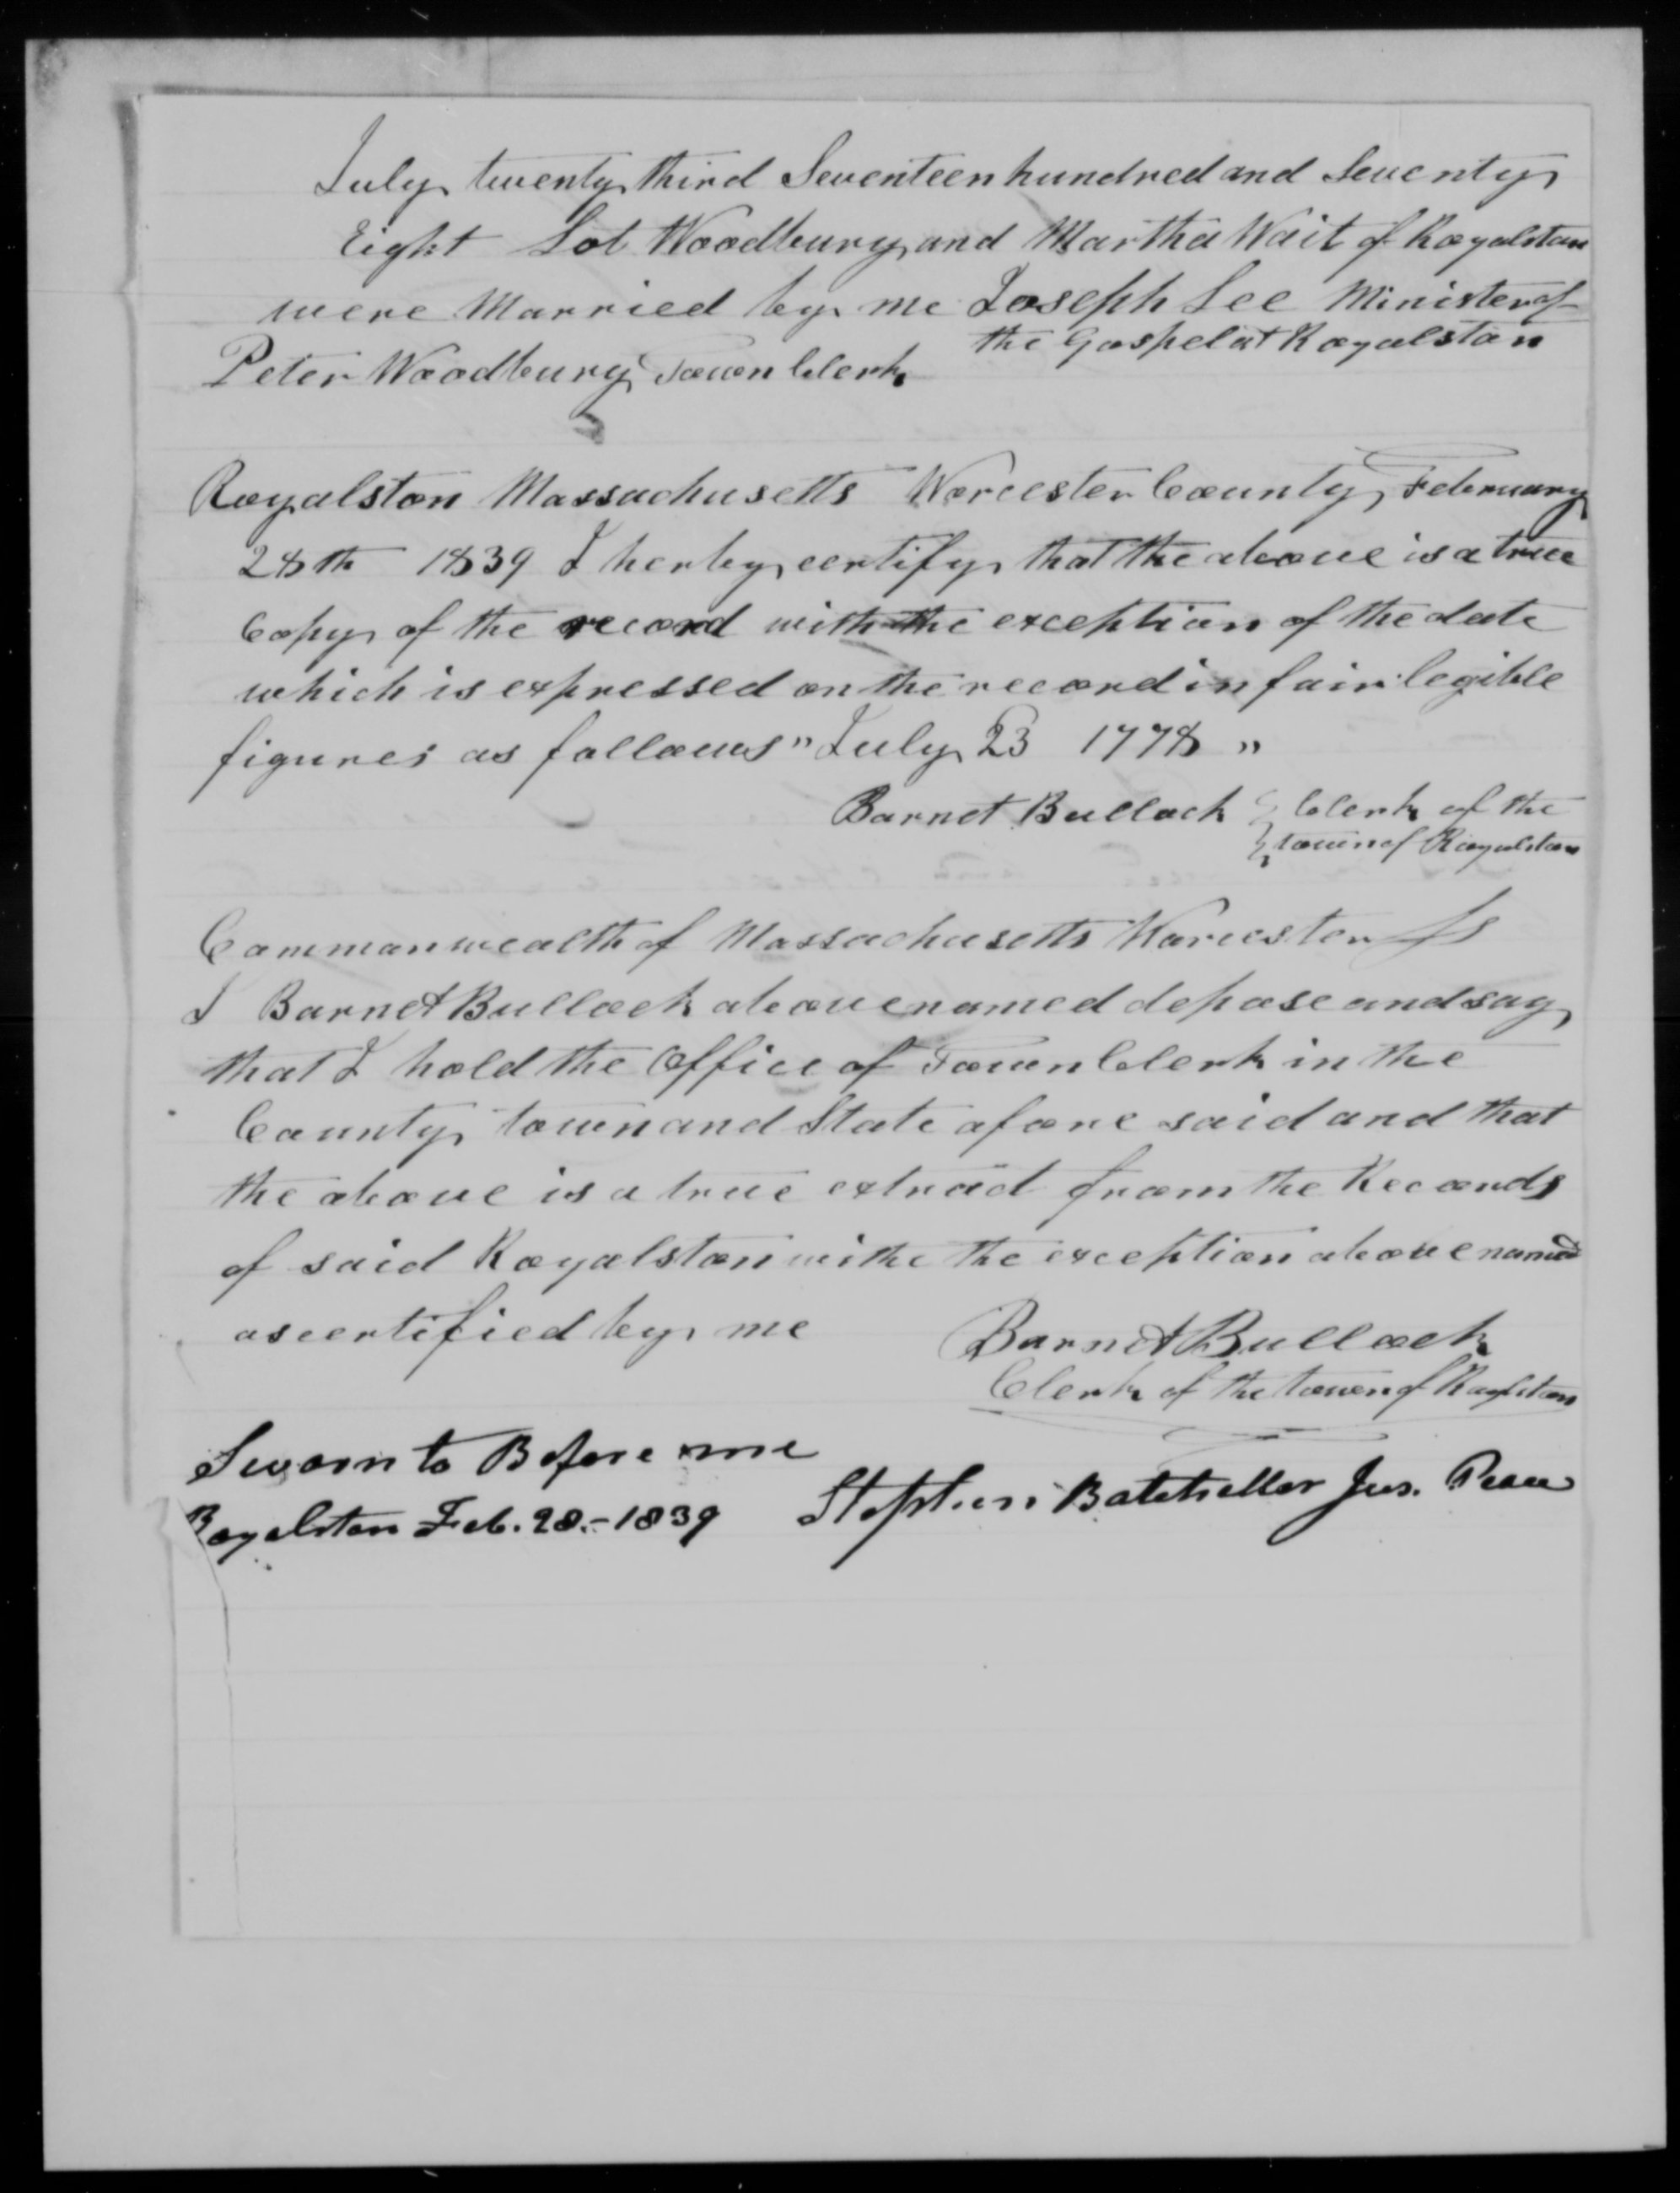 July twenty third Seventeen hundred and Seventy
Eight Lot Woodbury and Martha Wait of Royalston
were Married by me Joseph Lee Minister of
the Gospel at Royalston
Peter Woodbury Town Clerk
Royalston Massachusetts Worcester County February
28th 1839 I herby certify that the above is a true
Copy of the record with the exception of the date
which is expressed on the record in fair legible
figures as follows " July 23 1778 "
Barnet Bullock } Clerk of the
} town of Royalston
Commonwealth of Massachusetts Worcester Ss
I Barnet Bullock above named depose and say
that I hold the Office of Town Clerk in the
County, town and State afore said and that
the above is a true extract from the Records
of said Royalston withe the exception above named
as certified by me
Barnet Bullock
Clerk of the town of Royalston
Sworn to Before me
Royalston Feb. 28.-1839 Stephen Batcheller Jus. Peace